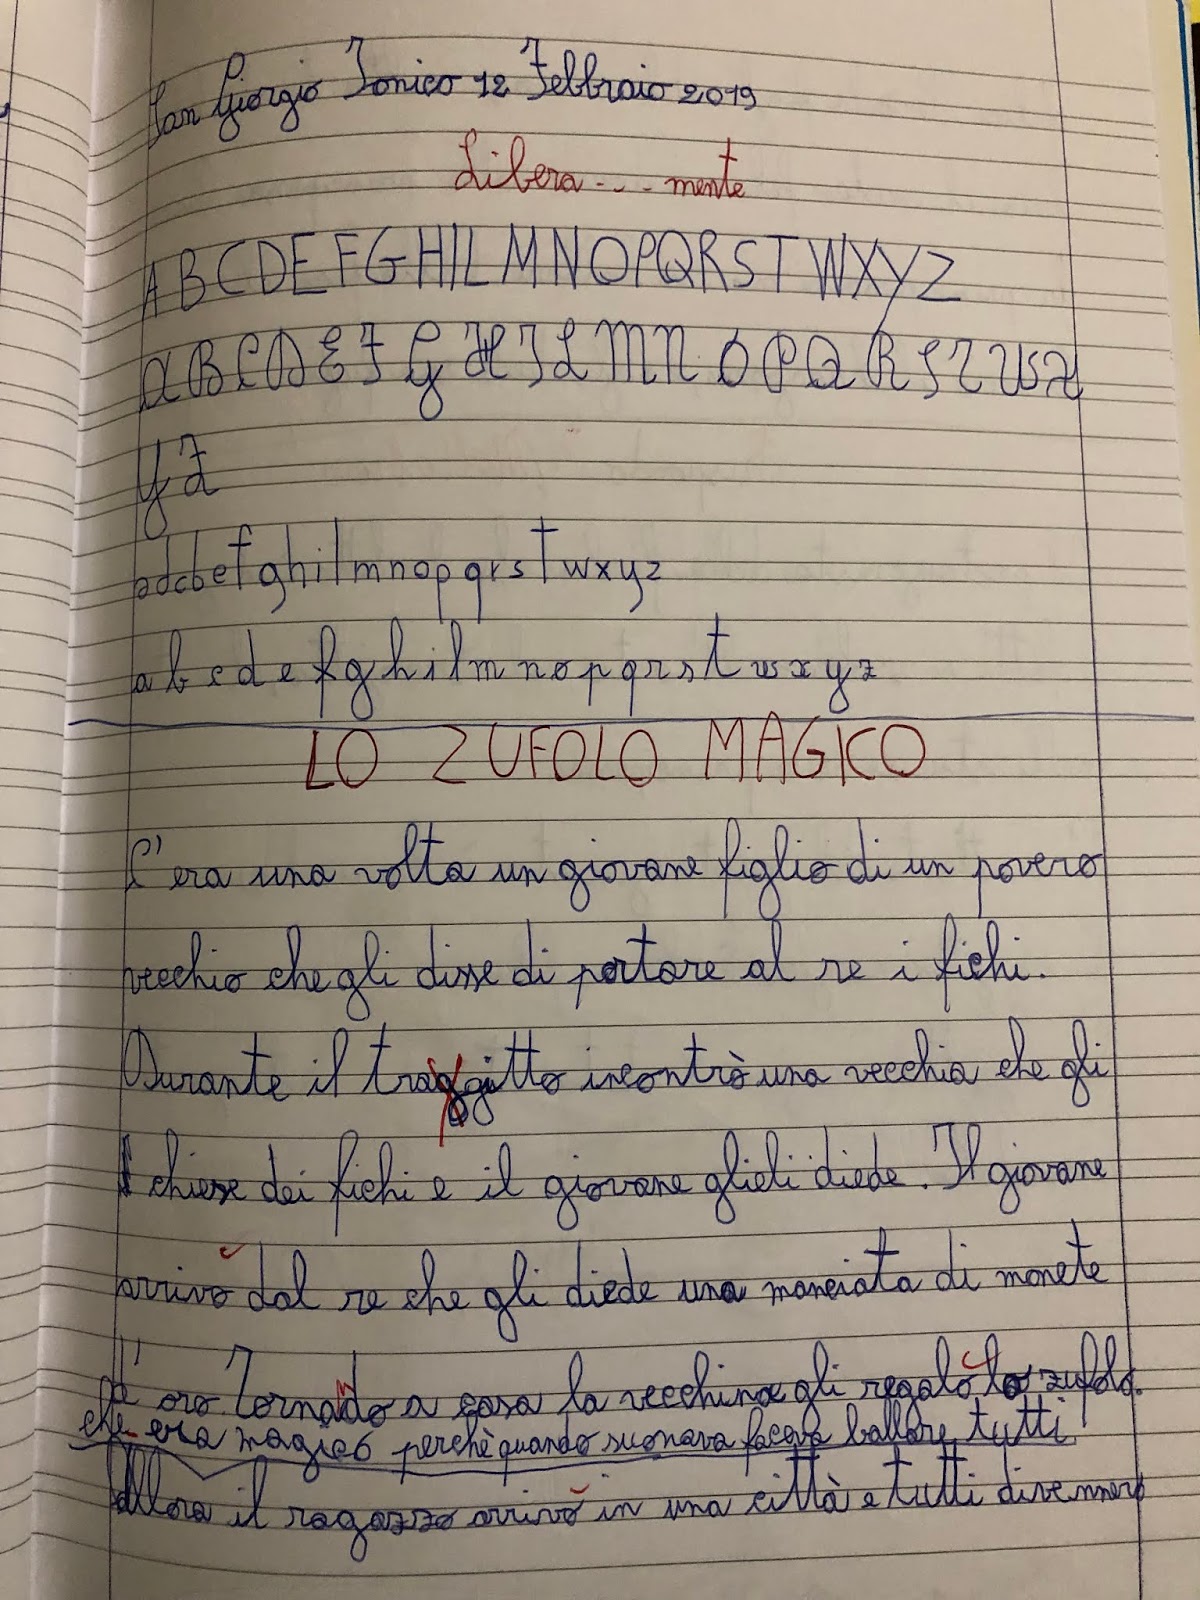 San Giorgio Jonico 12 Febbraio 2019
Libera... mente
ABCDEFGHILMNOPQRSTWXYZ
ABCDEFGHILMNOPQRSTWX
YZ
adcbefghilmnopqrstwxyz
abcdefghilmnopqrstwxyz
LO ZUFOLO MAGICO
C'era una volta un giovane figlio di un povero
vecchio che gli disse di portare al re i fichi.
Durante il traggitto incontrò una vecchia che gli
chiese dei fichi e il giovane glieli diede. Il giovane
arrivò dal re che gli diede una manciata di monete
d'oro Tornando a casa la vecchina gli regalò lo zufolo.
che era magico perchè quando suonava faceva ballare tutti
Allora il ragazzo arrivò in una città e tutti divennero